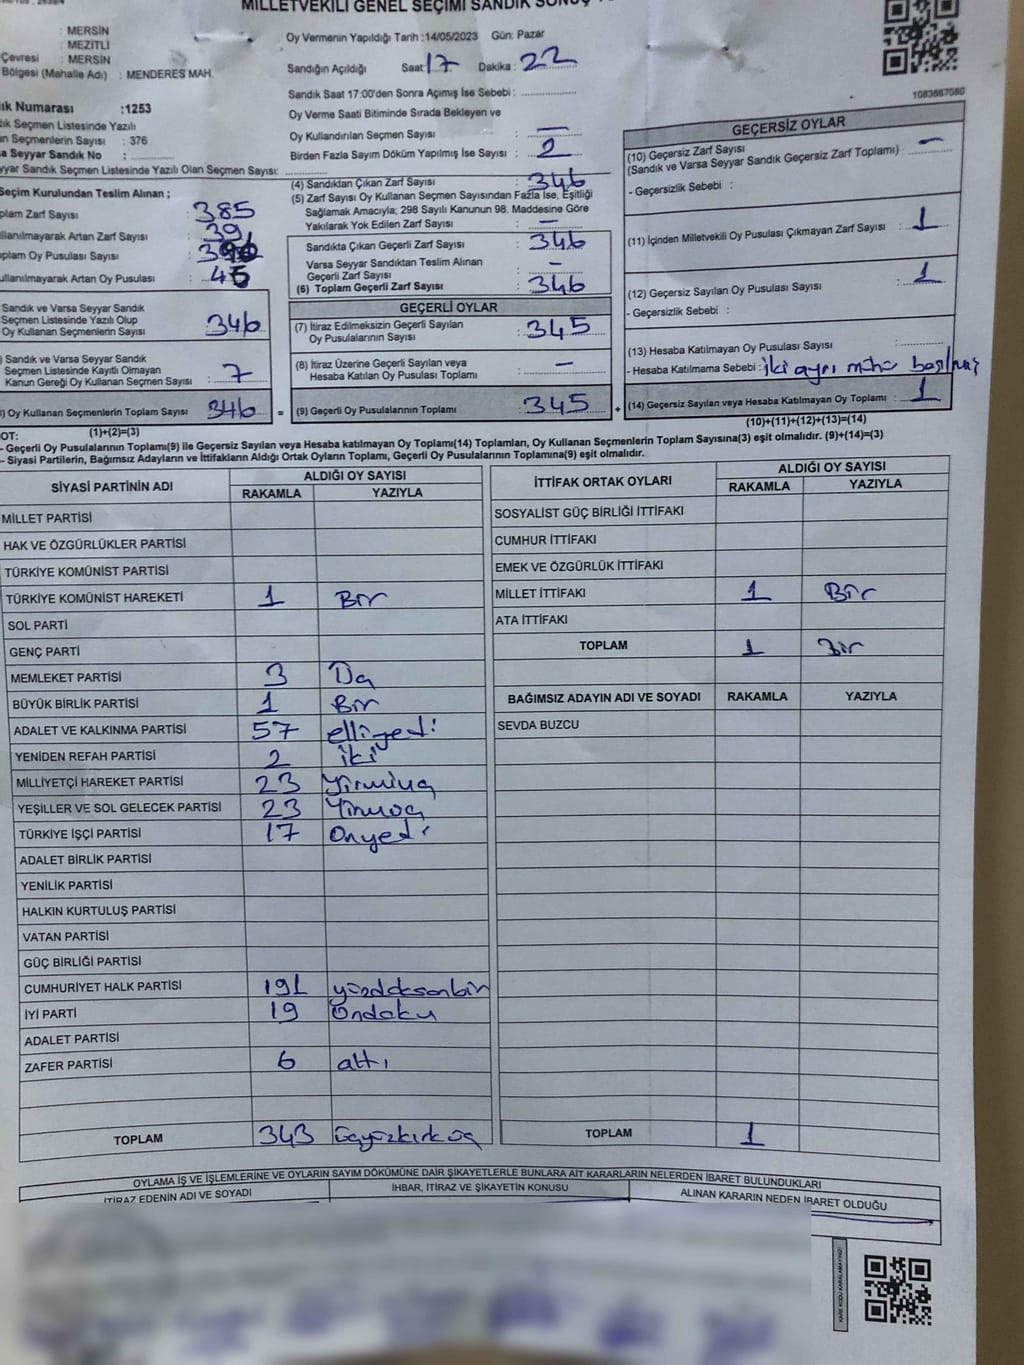 MİLLETVEKİLİ GENEL SEÇİMİ SANDIK
: MERSİN
: MEZİTLİ
Çevresi : MERSİN
Bölgesi (Mahalle Adı) : MENDERES MAH.
Numarası :1253
Seçmen Listesinde Yazılı
Seçmenlerin Sayısı : 376
Seyyar Sandık No :
Seyyar Sandık Seçmen Listesinde Yazılı Olan Seçmen Sayısı:
Seçim Kurulundan Teslim Alınan ;
Zarf Sayısı : 385
Artan Zarf Sayısı : 39
Oy Pusulası Sayısı :
Artan Oy Pusulası : 45
Sandık ve Varsa Seyyar Sandık
Seçmen Listesinde Yazılı Olup
Oy Kullanan Seçmenlerin Sayısı 346
Sandık ve Varsa Seyyar Sandık
Seçmen Listesinde Kayıtlı Olmayan
Kanun Gereği Oy Kullanan Seçmen Sayısı : 7
Oy Kullanan Seçmenlerin Toplam Sayısı 346 =
(1)+(2)=(3)
Oy Vermenin Yapıldığı Tarih :14/05/2023 Gün: Pazar
Sandığın Açıldığı Saat: 17 Dakika : 22
Sandık Saat 17:00'den Sonra Açımış İse Sebebi :
Oy Verme Saati Bitiminde Sırada Bekleyen ve
Oy Kullandırılan Seçmen Sayısı : —
Birden Fazla Sayım Döküm Yapılmış İse Sayısı : 2
(4) Sandıktan Çıkan Zarf Sayısı : 346
(5) Zarf Sayısı Oy Kullanan Seçmen Sayısından Fazla İse, Eşitliği
Sağlamak Amacıyla; 298 Sayılı Kanunun 98. Maddesine Göre
Yakılarak Yok Edilen Zarf Sayısı : —
Sandıkta Çıkan Geçerli Zarf Sayısı : 346
Varsa Seyyar Sandıktan Teslim Alınan
Geçerli Zarf Sayısı : —
(6) Toplam Geçerli Zarf Sayısı : 346
GEÇERLİ OYLAR
(7) İtiraz Edilmeksizin Geçerli Sayılan
Oy Pusulalarının Sayısı : 345
(8) İtiraz Üzerine Geçerli Sayılan veya
Hesaba Katılan Oy Pusulası Toplamı : —
(9) Geçerli Oy Pusulalarının Toplamı : 345 +
1083667080
GEÇERSİZ OYLAR
(10) Geçersiz Zarf Sayısı
(Sandık ve Varsa Seyyar Sandık Geçersiz Zarf Toplamı) : —
- Geçersizlik Sebebi :
(11) İçinden Milletvekili Oy Pusulası Çıkmayan Zarf Sayısı : 1
(12) Geçersiz Sayılan Oy Pusulası Sayısı : 1
- Geçersizlik Sebebi :
(13) Hesaba Katılmayan Oy Pusulası Sayısı :
- Hesaba Katılmama Sebebi : iki ayrı mühür basılmış
(14) Geçersiz Sayılan veya Hesaba Katılmayan Oy Toplamı : 1
(10)+(11)+(12)+(13)=(14)
NOT:
- Geçerli Oy Pusulalarının Toplamı(9) ile Geçersiz Sayılan veya Hesaba katılmayan Oy Toplamı(14) Toplamları, Oy Kullanan Seçmenlerin Toplam Sayısına(3) eşit olmalıdır. (9)+(14)=(3)
- Siyasi Partilerin, Bağımsız Adayların ve İttifakların Aldığı Ortak Oyların Toplamı, Geçerli Oy Pusulalarının Toplamına(9) eşit olmalıdır.
SİYASİ PARTİNİN ADI ALDIĞI OY SAYISI
RAKAMLA YAZIYLA
MİLLET PARTİSİ
HAK VE ÖZGÜRLÜKLER PARTİSİ
TÜRKİYE KOMÜNİST PARTİSİ
TÜRKİYE KOMÜNİST HAREKETİ 1 Bir
SOL PARTİ
GENÇ PARTİ
MEMLEKET PARTİSİ 3
BÜYÜK BİRLİK PARTİSİ 1 Bir
ADALET VE KALKINMA PARTİSİ 57 elliyedi
YENİDEN REFAH PARTİSİ 2 iki
MİLLİYETÇİ HAREKET PARTİSİ 23 Yirmiüç
YEŞİLLER VE SOL GELECEK PARTİSİ 23
TÜRKİYE İŞÇİ PARTİSİ 17 Onyedi
ADALET BİRLİK PARTİSİ
YENİLİK PARTİSİ
HALKIN KURTULUŞ PARTİSİ
VATAN PARTİSİ
GÜÇ BİRLİĞİ PARTİSİ
CUMHURİYET HALK PARTİSİ 191 yüzdoksanbir
İYİ PARTİ 19 Ondokuz
ADALET PARTİSİ
ZAFER PARTİSİ 6 altı
TOPLAM 343 üçyüzkırküç
İTTİFAK ORTAK OYLARI ALDIĞI OY SAYISI
RAKAMLA YAZIYLA
SOSYALİST GÜÇ BİRLİĞİ İTTİFAKI
CUMHUR İTTİFAKI
EMEK VE ÖZGÜRLÜK İTTİFAKI
MİLLET İTTİFAKI 1 Bir
ATA İTTİFAKI
TOPLAM 1 Bir
BAĞIMSIZ ADAYIN ADI VE SOYADI RAKAMLA YAZIYLA
SEVDA BUZCU
TOPLAM 1
OYLAMA İŞ VE İŞLEMLERİNE VE OYLARIN SAYIM DÖKÜMÜNE DAİR ŞİKAYETLERLE BUNLARA AİT KARARLARIN NELERDEN İBARET BULUNDUKLARI
İTİRAZ EDENİN ADI VE SOYADI İHBAR, İTİRAZ VE ŞİKAYETİN KONUSU ALINAN KARARIN NEDEN İBARET OLDUĞU
KARE KODU KARALAMAYINIZ!